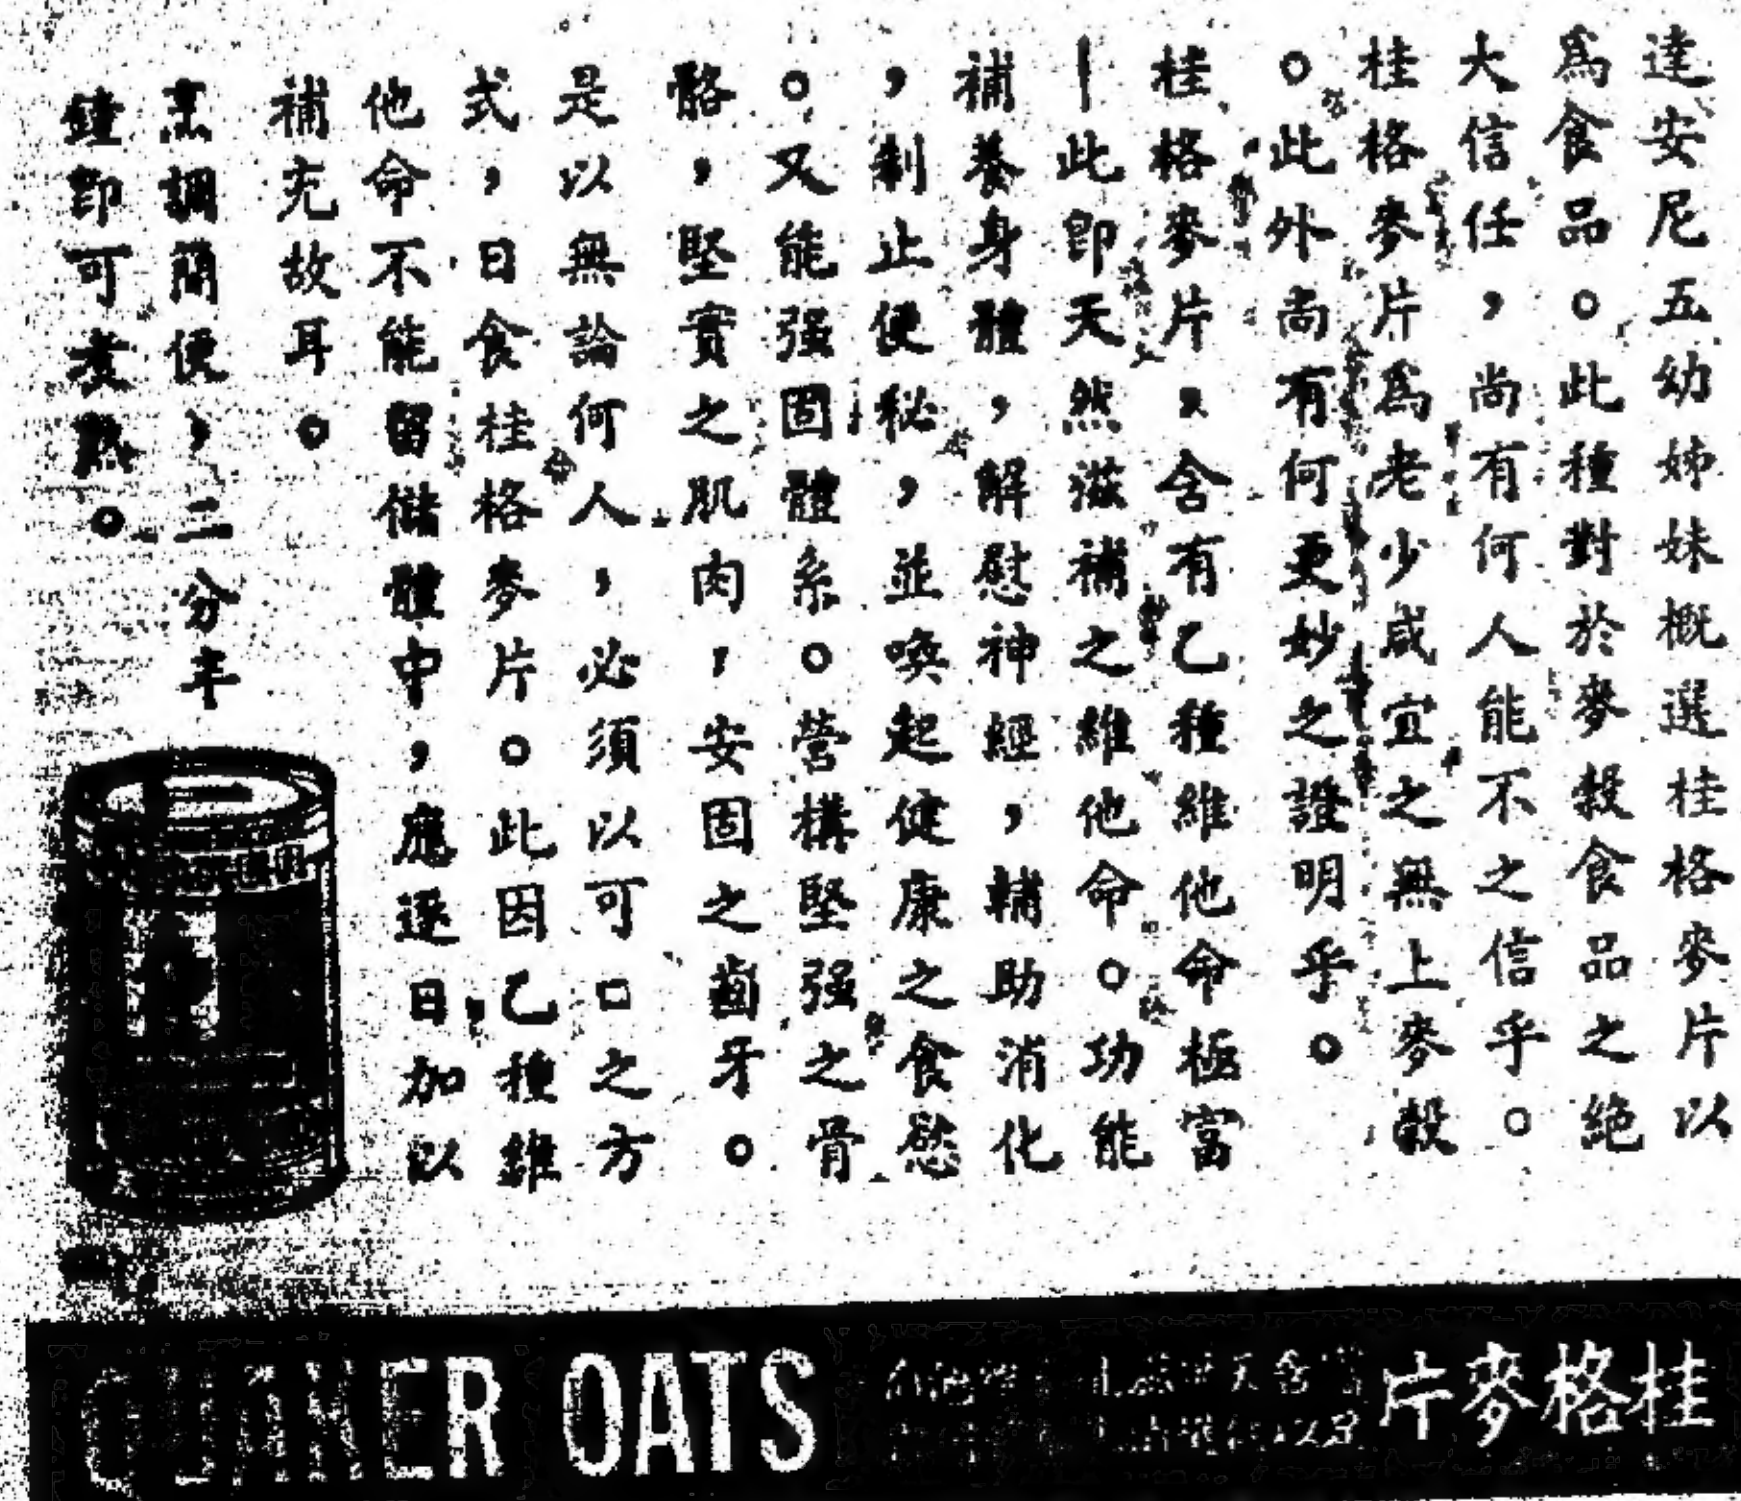 達安尼五幼姊妹概選桂格麥片以
爲食品。此種對於麥穀食品之絶
大信任，尚有何人能不之信乎。
桂格麥片爲老少咸宜之無上麥穀
。此外尚有何更妙之證明乎。
桂格麥片，含有乙種維他命極富
—此卽天然滋補之維他命。功能
補養身體，解慰神經，輔助消化
，制止便秘，並喚起健康之食慾
。又能强固體系。營構堅强之骨
骼，堅實之肌肉，安固之齒牙。
是以無論何人，必須以可口之方
式，日食桂格麥片。此因乙種維
他命不能留儲體中，應逐日加以
補充故耳。
烹調簡便，二分半
鐘卽可煮熟。
QUAKER OATS
片麥格桂